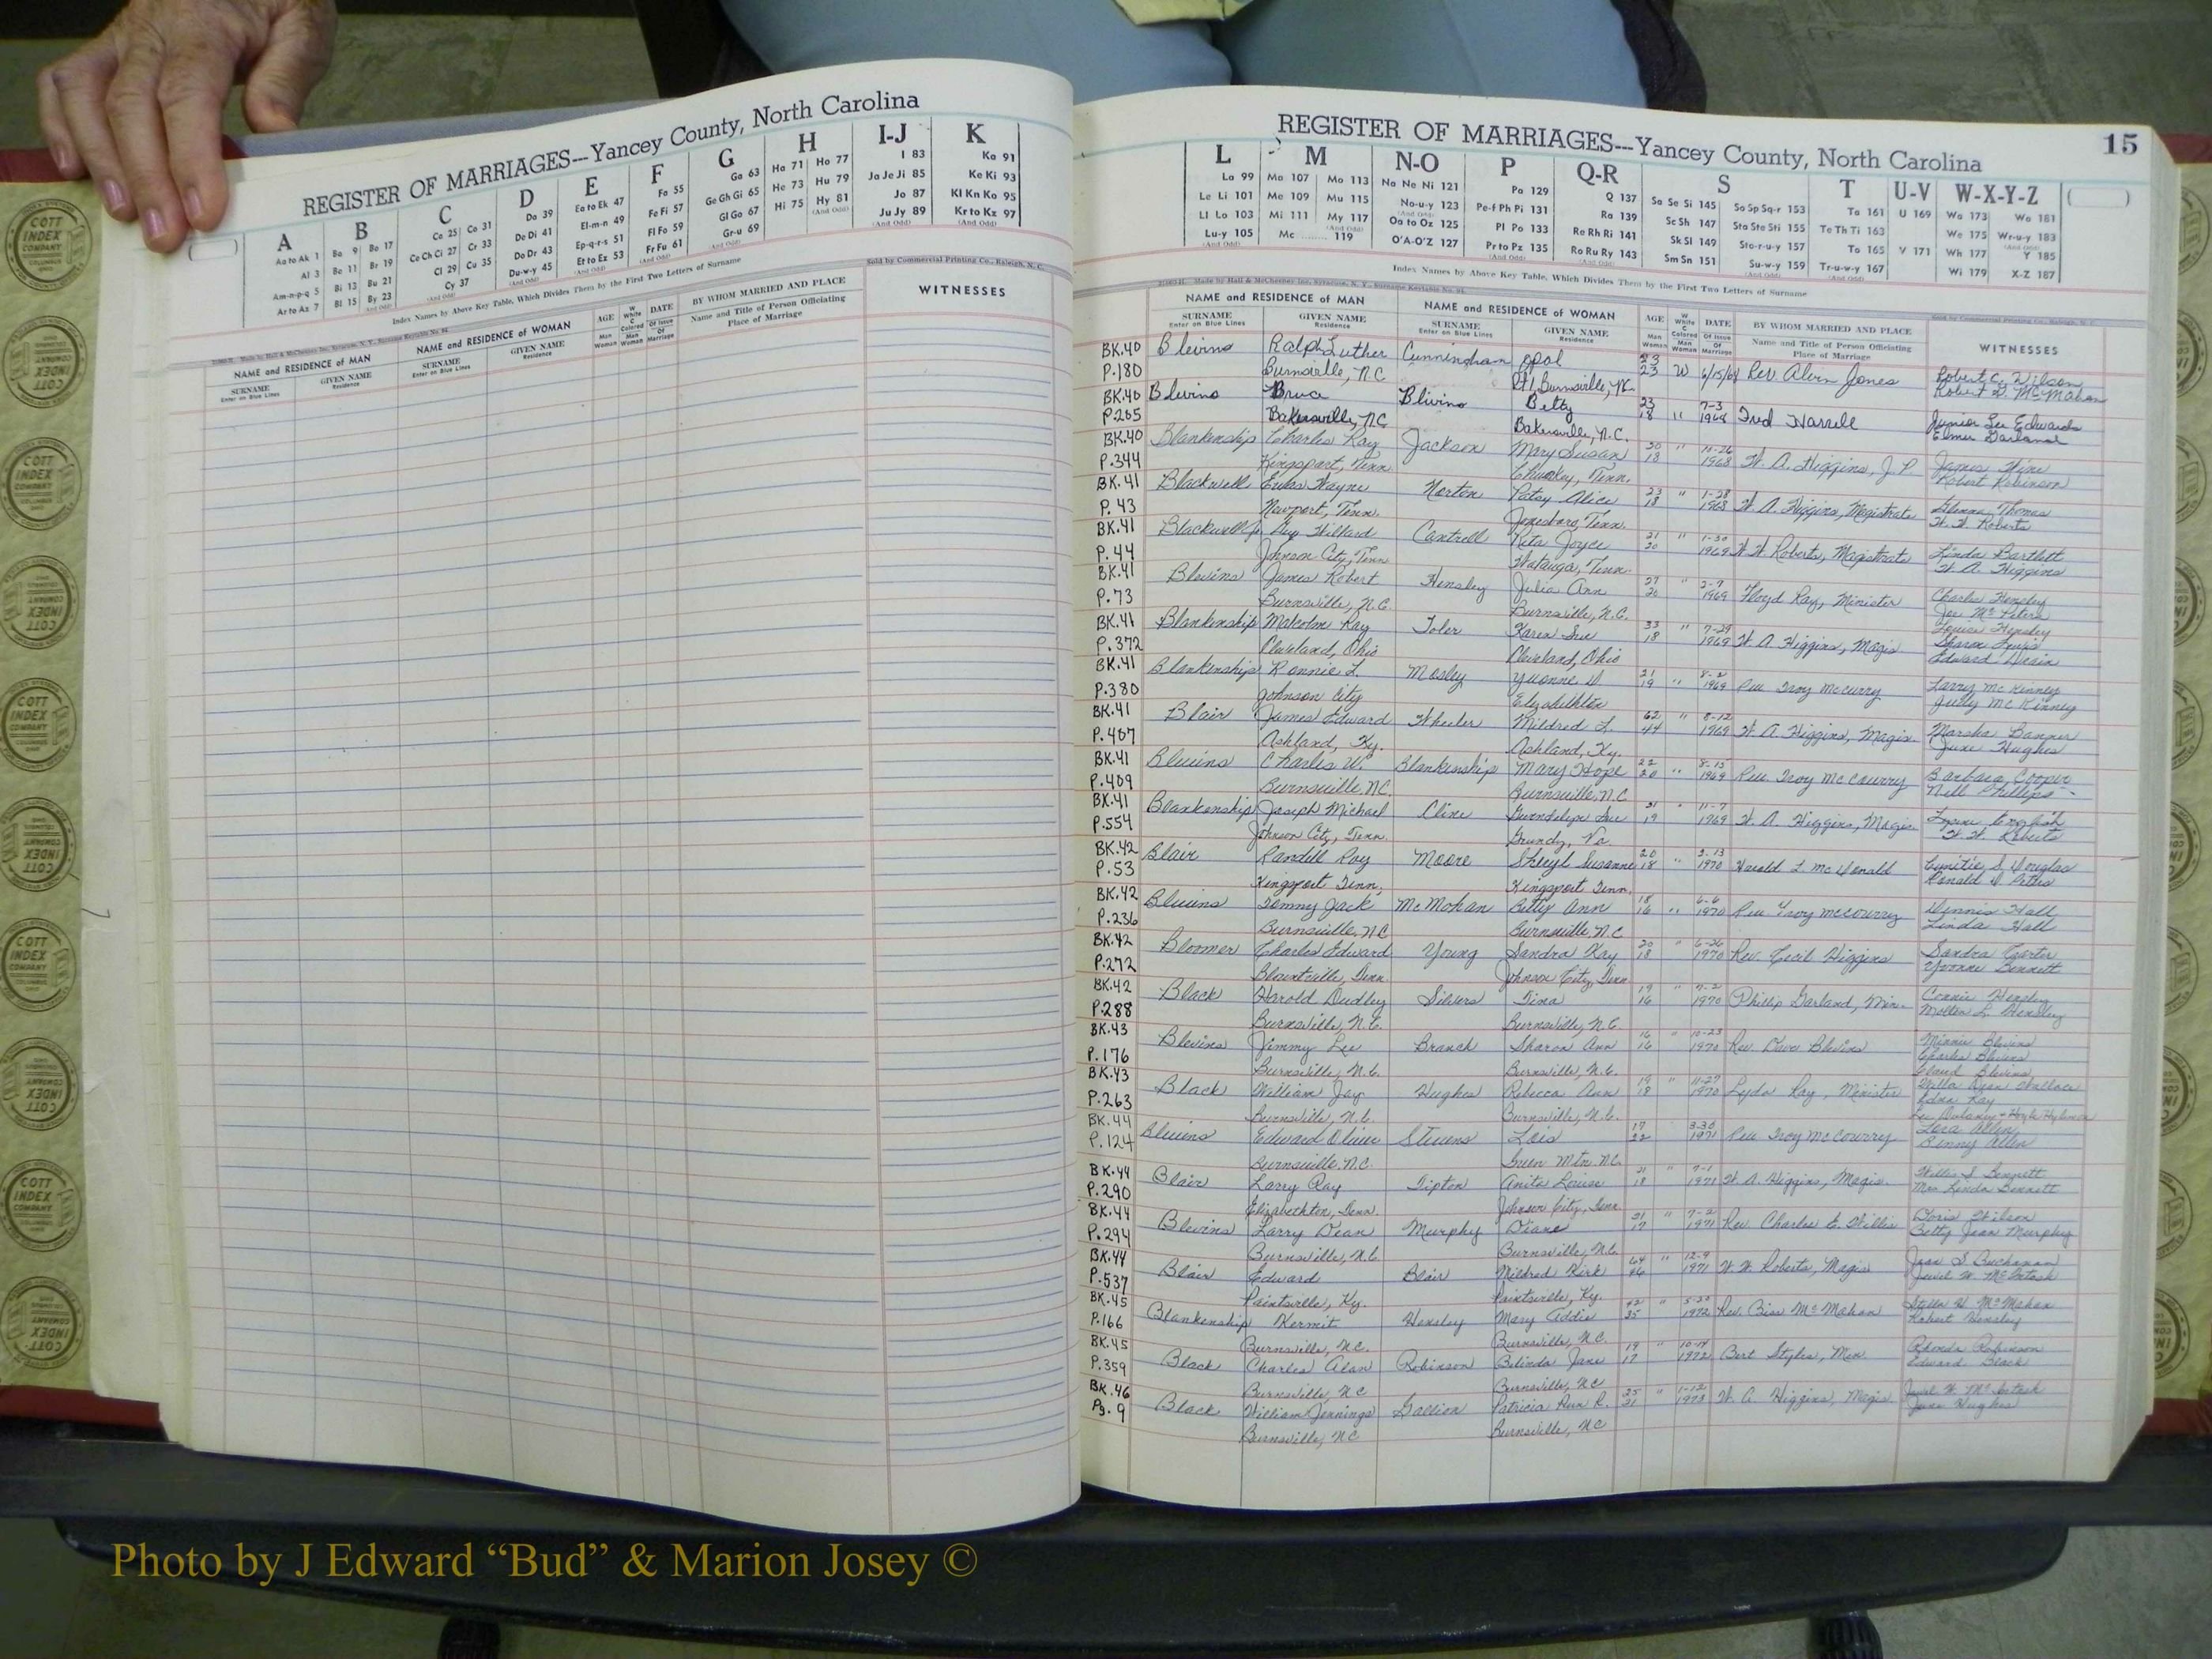 REGISTER OF MARRIAGES---Yancey County, North Carolina
A B C D E F G H I-J K
Aa to Ak 1 Ba 9 Bo 17 Ca 25 Co 31 Da 39 Ea to Ek 47 Fa 55 Ga 63 Ha 71 Ho 77 I 83 Ka 91
Al 3 Be 11 Br 19 Ce Ch Ci 27 Cr 33 De Di 41 El-m-n 49 Fe Fi 57 Ge Gh Gi 65 He 73 Hu 79 Ja Je Ji 85 Ke Ki 93
Am-n-p-q 5 Bi 13 Bu 21 Cl 29 Cu 35 Do Dr 43 Ep-q-r-s 51 Fl Fo 59 Gl Go 67 Hi 75 Hy 81 Jo 87 Kl Kn Ko 95
Ar to Az 7 Bl 15 By 23 Cy 37 Du-w-y 45 Et to Ez 53 Fr Fu 61 Gr-u 69 Ju Jy 89 Kr to Kz 97
Index Names by Above Key Table, Which Divides Them by the First Two Letters of Surname
Sold by Commercial Printing Co., Raleigh, N. C.
NAME and RESIDENCE of MAN NAME and RESIDENCE of WOMAN AGE DATE BY WHOM MARRIED AND PLACE WITNESSES
SURNAME GIVEN NAME SURNAME GIVEN NAME Name and Title of Person Officiating
Enter on Blue Lines Residence Enter on Blue Lines Residence Place of Marriage
REGISTER OF MARRIAGES---Yancey County, North Carolina 15
L M N-O P Q-R S T U-V W-X-Y-Z
La 99 Ma 107 Mo 113 Na Ne Ni 121 Pa 129 Q 137 Sa Se Si 145 So Sp Sq-r 153 Ta 161 U 169 Wa 173 Wo 181
Le Li 101 Me 109 Mu 115 No-u-y 123 Pe-f Ph Pi 131 Ra 139 Sc Sh 147 Sta Ste Sti 155 Te Th Ti 163 We 175 Wr-u-y 183
Ll Lo 103 Mi 111 My 117 Oa to Oz 125 Pl Po 133 Re Rh Ri 141 Sk Sl 149 Sto-r-u-y 157 To 165 V 171 Wh 177 Y 185
Lu-y 105 Mc 119 O'A-O'Z 127 Pr to Pz 135 Ro Ru Ry 143 Sm Sn 151 Su-w-y 159 Tr-u-w-y 167 Wi 179 X-Z 187
Index Names by Above Key Table, Which Divides Them by the First Two Letters of Surname
NAME and RESIDENCE of MAN NAME and RESIDENCE of WOMAN AGE DATE BY WHOM MARRIED AND PLACE WITNESSES
SURNAME GIVEN NAME SURNAME GIVEN NAME Name and Title of Person Officiating
Enter on Blue Lines Residence Enter on Blue Lines Residence Place of Marriage
BK.40 Blevins Ralph Luther Cunningham Opal 23 Robert C. Wilson
P.180 Burnsville, NC Rt 1, Burnsville, NC 23 W Rev Alvin Jones Robert D. McMahan
BK.40 Blevins Bruce Blevins Betty 23 7-3 Junior Lee Edwards
P.265 Bakersville, NC Bakersville, N.C. 18 " 1968 Fred Harrell Elmer Garland
BK.40 Blankenship Charles Ray Jackson Mary Susan 20 " 11-26
P.344 Kingsport, Tenn Chuckey, Tenn. 18 1968 W. A. Higgins, J. P. Robert Robinson
BK.41 Blackwell Wayne Norton Patsy Alice 23 " 1-28 Thomas
P.43 Newport, Tenn. Jonesboro, Tenn. 18 W. A. Higgins, Magistrate W. W. Roberts
BK.41 Blackwell Willard Cantrell Rita Joyce 21 " 1-30 Linda Bartlett
P.44 Johnson City, Tenn Watauga, Tenn. 20 1969 W. W. Roberts, Magistrate W. A. Higgins
BK.41 Blevins James Robert Hensley Julia Ann 27 " 2-7 Charles Hensley
P.73 Burnsville, N.C. Burnsville, N.C. 20 1969 Floyd Ray, Minister Joe McPeters
Louise Hensley
BK.41 Blankenship Malcolm Ray Toler Karen Sue 33 " 7-29 Sharon Lewis
P.372 Cleveland, Ohio Cleveland, Ohio 18 1969 W. A. Higgins, Magis. Edward
BK.41 Blankenship Ronnie L. Mosley Yvonne 21 8-2 Larry McKinney
P.380 Johnson City 19 " 1969 Rev Troy McCurry Judy McKinney
BK.41 Blair James Edward Wheeler Mildred L. 62 " 8-12 Marsha Banner
P.407 Ashland, Ky. Ashland, Ky. 44 1969 W. A. Higgins, Magis. June Hughes
BK.41 Blevins Charles W. Blankenship Mary Hope 22 8-15 Barbara Cooper
P.409 Burnsville, NC. Burnsville, N.C 20 " 1969 Rev. Troy McCourry Nell Phillips
BK.41 Blankenship Joseph Michael Cline Gwendolyn Sue 21 " 11-7
P.554 Johnson City, Tenn. Grundy, Va. 19 1969 W. A. Higgins, Magis. W. W. Roberts
BK.42 Blair Randell Roy Moore Sheryl Susanne 20 2-13
P.53 Kingsport Tenn. Kingsport Tenn. 18 " 1970 Harold L McDonald Ronald
BK.42 Blevins Tommy Jack McMahan Betty Ann 18 6-6 Dennis Hall
P.236 Burnsville, NC Burnsville, N.C 16 " 1970 Rev. Troy McCourry Linda Hall
BK.42 Bloomer Charles Edward Young Sandra Kay 20 " 6-26 Sandra Carter
P.272 Blountville, Tenn. Johnson City, Tenn 18 1970 Rev. Cecil Higgins Yvonne Bennett
BK.42 Black Harold Dudley Silvers Tina 19 " 7-2 Connie Hensley
P.288 Burnsville, N.C. Burnsville, N.C. 16 1970 Phillip Garland, Min. Hensley
BK.43 Blevins Jimmy Lee Branch Sharon Ann 16 " 10-23 Minnie Blevins
P.176 Burnsville, N.C. Burnsville, N.C. 16 1970 Rev. Dave Blevins Charles Blevins
Claud Blevins
BK.43 Black William Jay Hughes Rebecca Ann 19 " 11-27 Wallace
P.263 Burnsville, N.C. Burnsville, N.C. 18 1970 Lyda Ray, Minister Edna Ray
BK.44 Blevins Edward Oliver Stevens Lois 17 3-30 Allen
P.124 Burnsville. N.C. Green Mtn. NC. 22 1971 Rev Troy McCourry Benny Allen
BK.44 Blair Larry Ray Tipton Anita Louise 21 " 7-1 Willis S. Bennett
P.290 Elizabethton, Tenn. Johnson City, Tenn 18 1971 W. A. Higgins, Magis. Mrs Linda Bennett
BK.44 Blevins Larry Dean Murphy Diane 21 " 7-2 Doris Wilson
P.294 Burnsville, N.C. Burnsville, N.C. 17 1971 Rev. Charles E. Willis Betty Jean Murphy
BK.44 Blair Edward Blair Mildred Kirk 64 " 12-9 Jean S Buchanan
P.537 Paintsville, Ky. Paintsville, Ky. 46 1971 W. W. Roberts, Magis Jewel W. McIntosh
BK.45 Blankenship Kermit Hensley Mary Addie 42 " 5-20 Stella McMahan
P.166 Burnsville, N.C. Burnsville, N.C. 35 1972 Rev. McMahan Robert Hensley
BK.45 Black Charles Alan Robinson Belinda Jane 19 " Rhonda Robinson
P.359 Burnsville, NC Burnsville, NC 17 1972 Bert Styles, Min. Edward Black
BK.46 Black William Jennings Gallion Patricia Ann R. 25 " 1-12 Jewel W. McIntosh
Pg.9 Burnsville, NC Burnsville, NC 21 1973 W. A. Higgins, Magis. June Hughes
Photo by J Edward “Bud” & Marion Josey ©